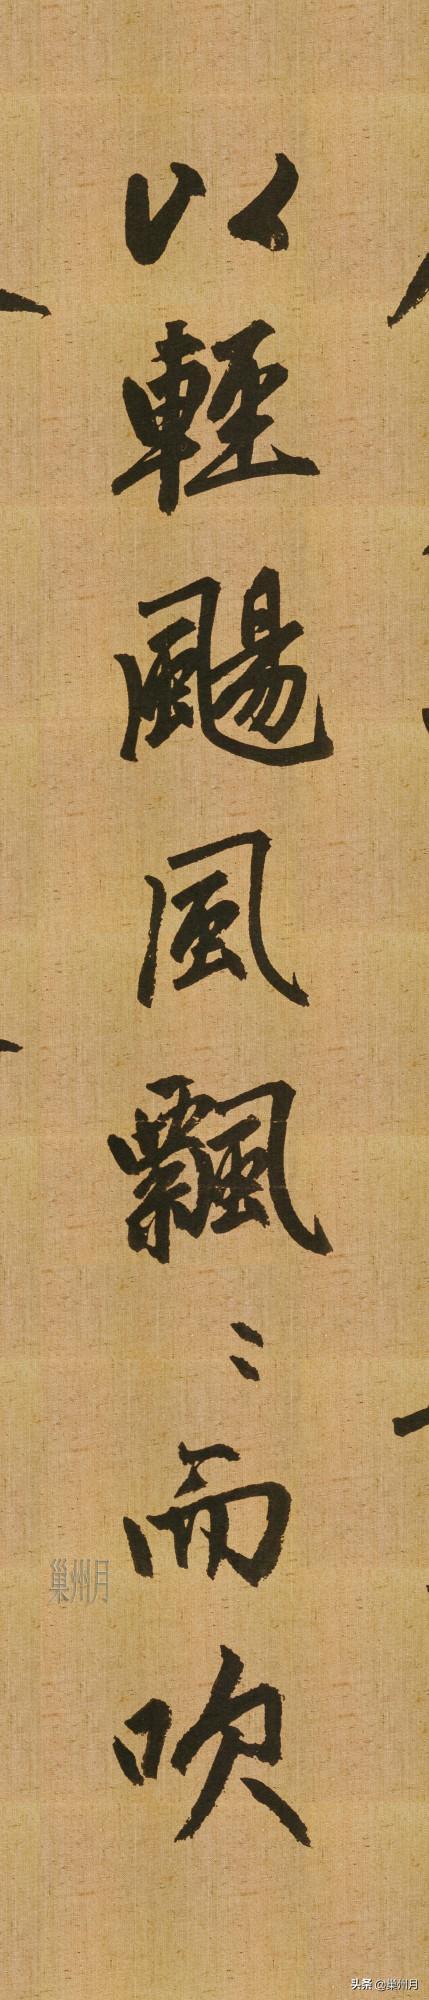 以輕颺風飄〻而吹
巢州月
头条 @巢州月